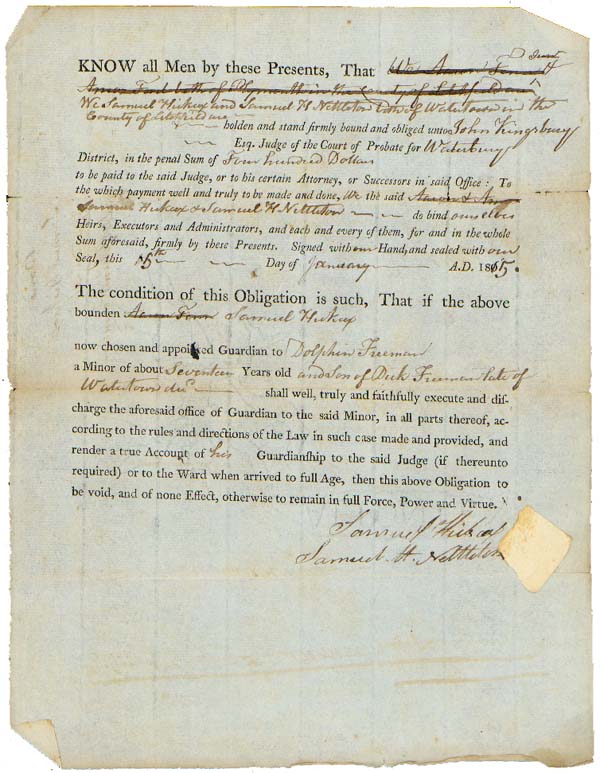 KNOW all Men by these Presents, That We Aaron Fenn
of Plymouth in the County of Litchfield
We Samuel Hickox and Samuel H Nettleton both of Watertown in the
County of Litchfield are
holden and stand firmly bound and obliged unto John Kingsbury
Esq. Judge of the Court of Probate for Waterbury
District, in the penal Sum of Four hundred Dollars
to be paid to the said Judge, or to his certain Attorney, or Successors in said Office: To
the which payment well and truly to be made and done, We the said Aaron &
Samuel Hickox & Samuel H Nettleton do bind ourselves
Heirs, Executors and Administrators, and each and every of them, for and in the whole
Sum aforesaid, firmly by these Presents. Signed with our Hand, and sealed with our
Seal, this 5th Day of January A.D. 1815.
The condition of this Obligation is such, That if the above
bounden Aaron Fenn Samuel Hickox
now chosen and appointed Guardian to Dolphin Freeman
a Minor of about Seventeen Years old and Son of Dick Freeman late of
Watertown decd shall well, truly and faithfully execute and dis-
charge the aforesaid office of Guardian to the said Minor, in all parts thereof, ac-
cording to the rules and directions of the Law in such case made and provided, and
render a true Account of his Guardianship to the said Judge (if thereunto
required) or to the Ward when arrived to full Age, then this above Obligation to
be void, and of none Effect, otherwise to remain in full Force, Power and Virtue.
Samuel Hickox
Samuel H. Nettleton